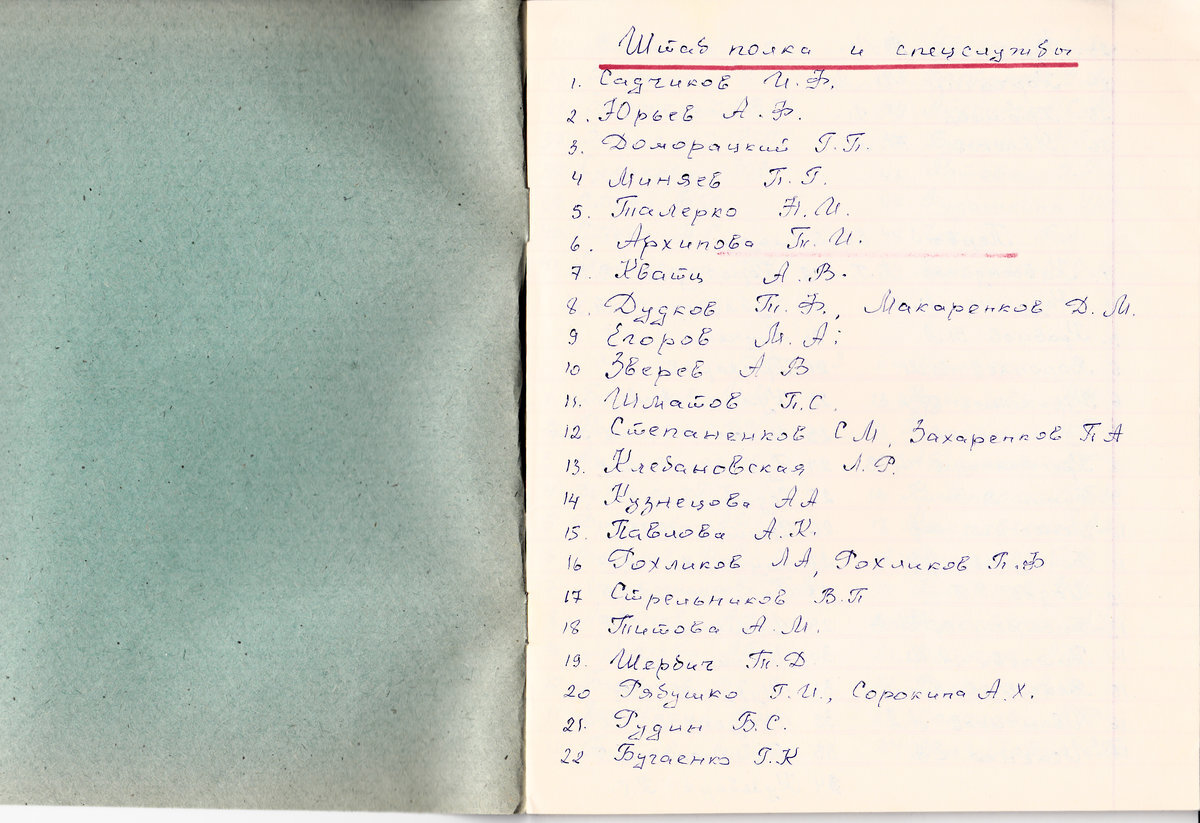 Штаб полка и спецслужбы
1. Садчиков И.Ф.
2. Юрьев А.Ф.
3. Доморацкий Г.П.
4 Миняев П.Г.
5. Талерко Н.И.
6. Архипова Т.И.
7. Кватц А.В.
8. Дудков Т.Ф., Макаренков Д.М.
9 Егоров М.А.
10 Зверев А В
11. Шматов П.С.
12 Степаненков С М, Захаренков П А
13. Клебановская Л.Р.
14 Кузнецова А А
15. Павлова А.К.
16 Рохликов Л А, Рохликов П.Ф
17 Стрельников В.П
18 Титова А.М.
19. Шербич Т.Д
20 Рябушко Г.И., Сорокина А.Х.
21. Рудин В.С.
22 Бугаенко Г.К